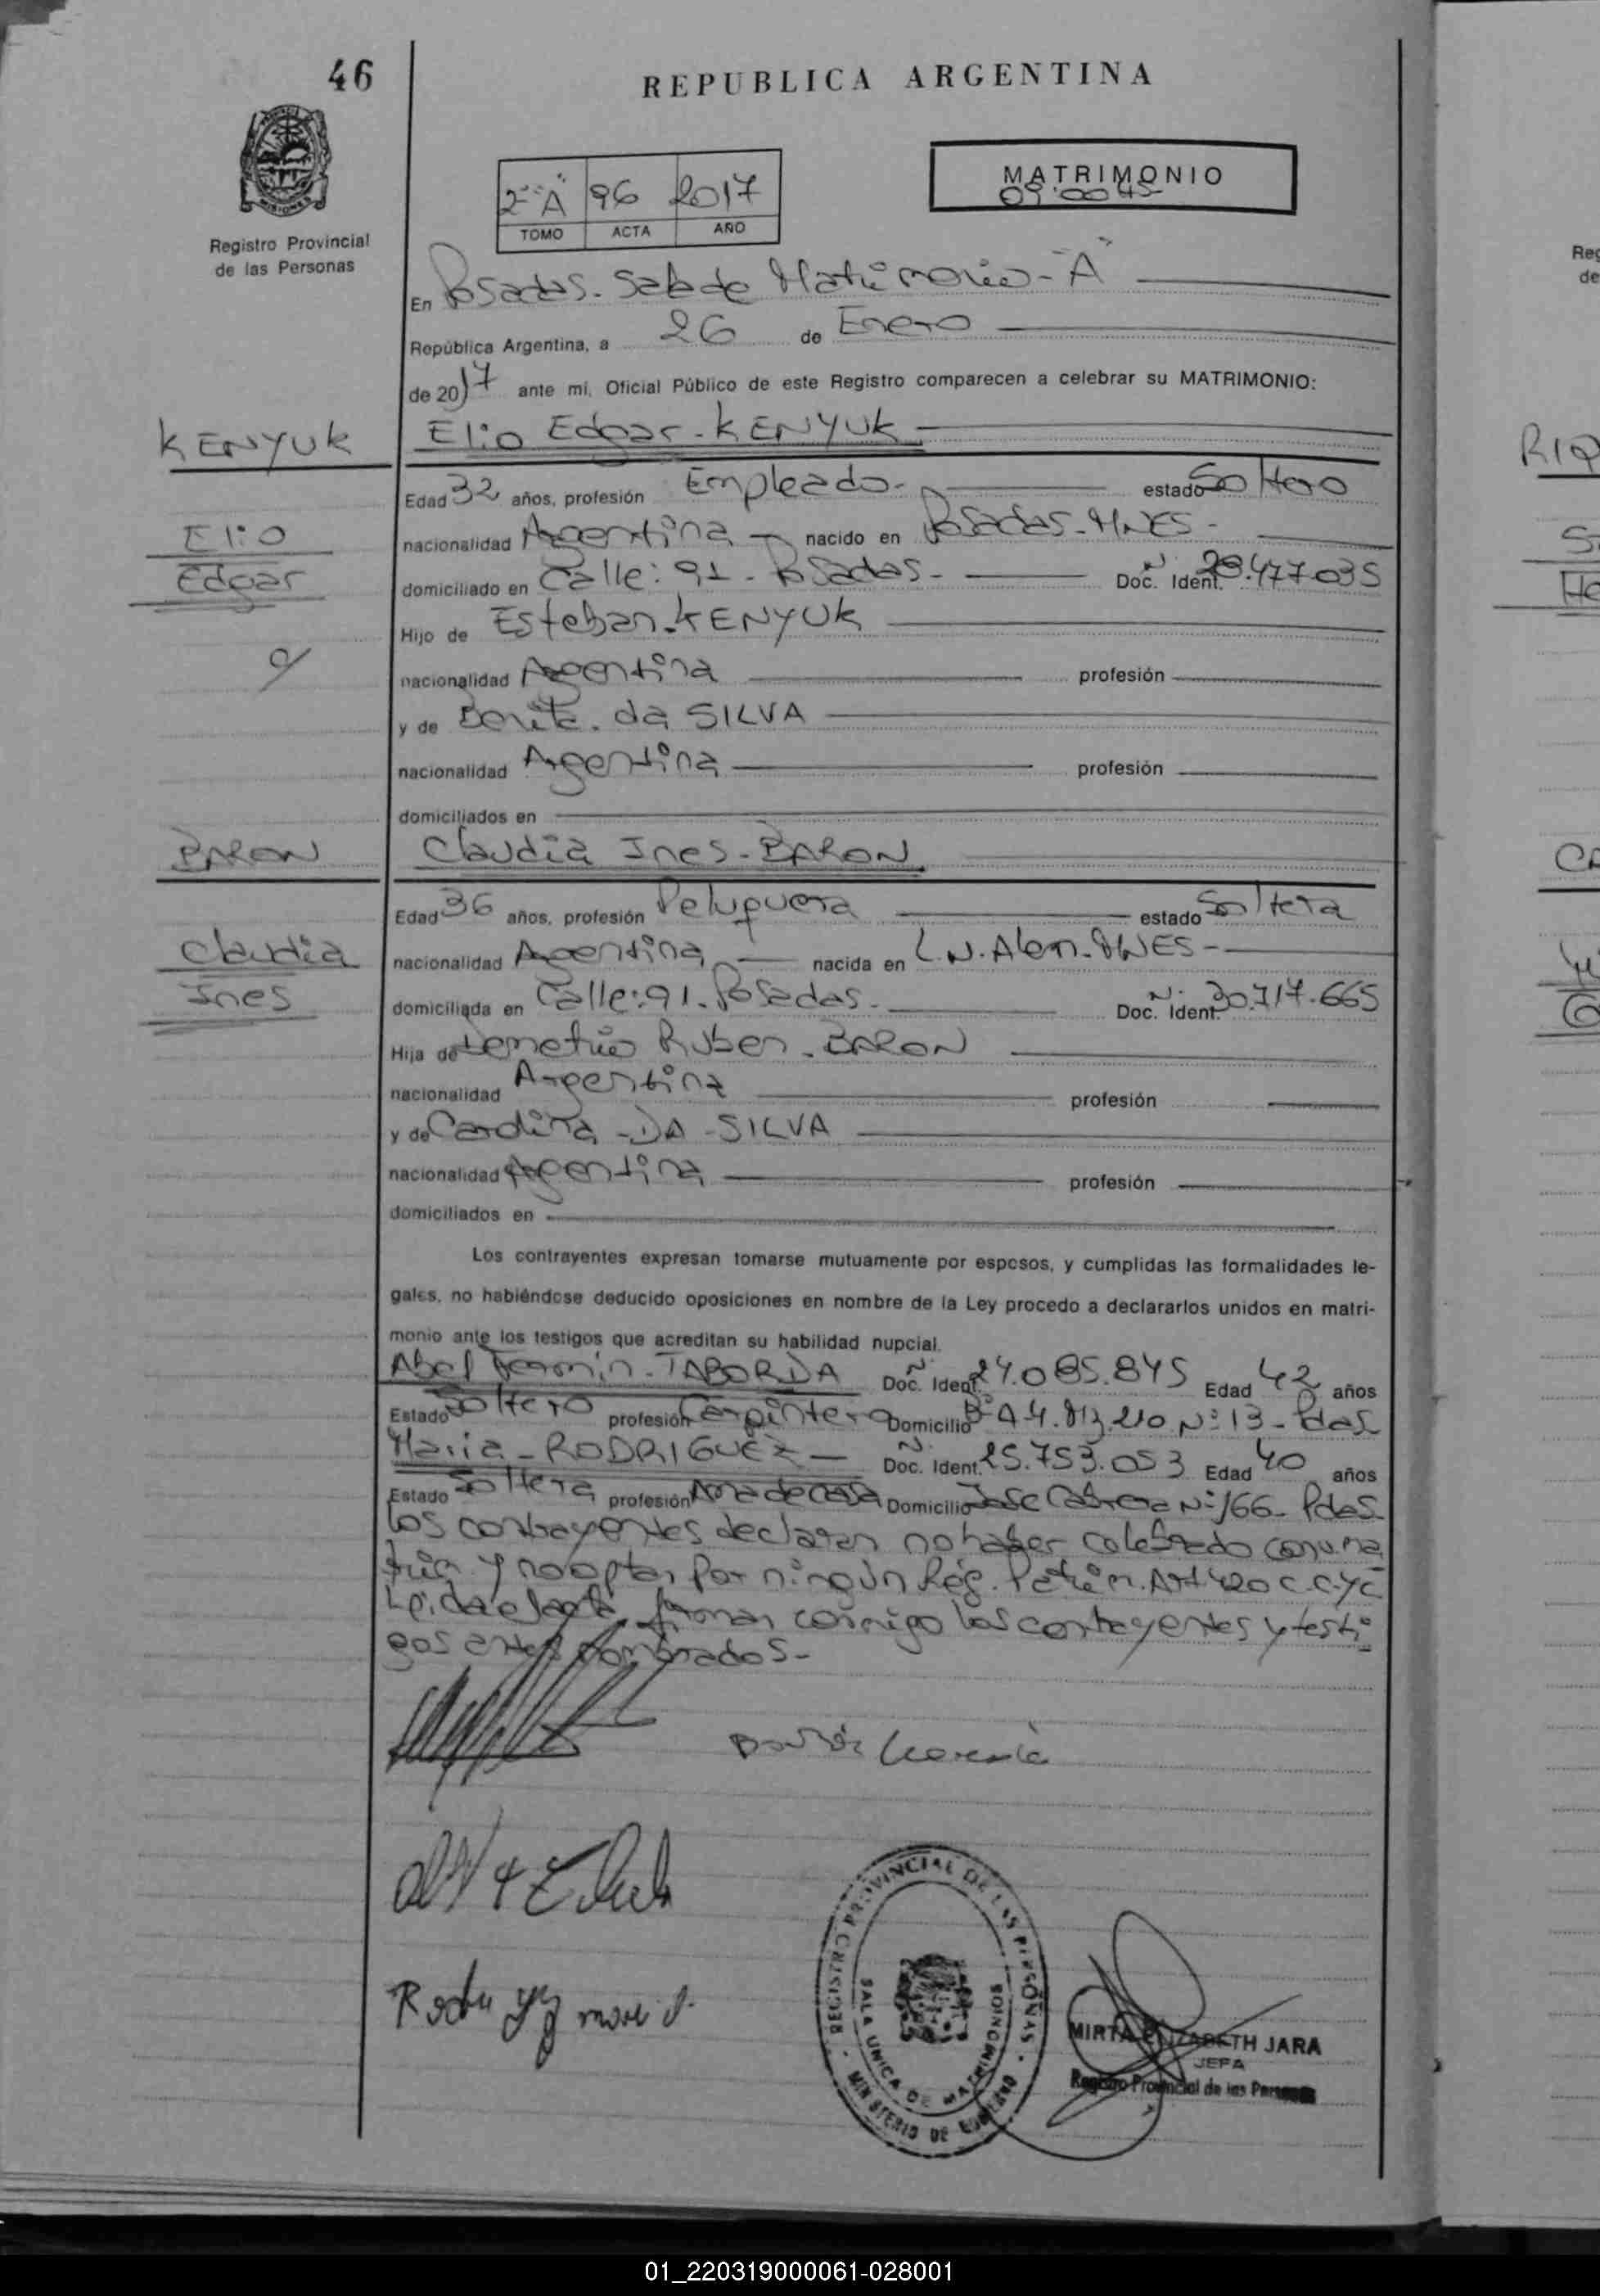 46
REPUBLICA ARGENTINA
MATRIMONIO
09:0045
2º "A" 96 2017
TOMO ACTA AÑO
Registro Provincial
de las Personas
En Posadas - Sala de Matrimonio - "A"
República Argentina, a 26 de Enero
de 2017 ante mi, Oficial Público de este Registro comparecen a celebrar su MATRIMONIO:
KENYUK Elio Edgar - KENYUK
Edad 32 años, profesión Empleado - estado Soltero
Elio nacionalidad Argentina nacido en Posadas - MNES -
Edgar domiciliado en Calle: 91 - Posadas - Doc. Ident. Nº 29.477.035
Hijo de Esteban - KENYUK
nacionalidad Argentina profesión
y de Benita - da SILVA
nacionalidad Argentina profesión
domiciliados en
BARON Claudia Ines - BARON
Edad 36 años, profesión Peluquera estado Soltera
Claudia nacionalidad Argentina nacida en L.N. Alem - MNES -
Ines domiciliada en Calle: 91 - Posadas - Doc. Ident. Nº 30.717.665
Hija de Demetrio Ruben - BARON
nacionalidad Argentina profesión
y de Carolina - DA - SILVA
nacionalidad Argentina profesión
domiciliados en
Los contrayentes expresan tomarse mutuamente por esposos, y cumplidas las formalidades le-
gales, no habiéndose deducido oposiciones en nombre de la Ley procedo a declararlos unidos en matri-
monio ante los testigos que acreditan su habilidad nupcial.
Abel Fermin - TABORDA Doc. Ident. Nº 24.085.845 Edad 42 años
Estado Soltero profesión Carpintero Domicilio Bº A-4. Nº 13 - Pdas
Maria - RODRIGUEZ - Doc. Ident. Nº 25.753.053 Edad 40 años
Estado Soltera profesión Ama de casa Domicilio Jose Cabrera Nº 166 - Pdas -
Los contrayentes declaran no haber celebrado conv. ma
trim. y no optan por ningún Rég. Patrim. Art 420 C.C.yC
Leida el acta, firman conmigo los contrayentes y testi-
gos antes nombrados -
Rodriguez maria
REGISTRO PROVINCIAL DE LAS PERSONAS
SALA UNICA DE MATRIMONIOS
MINISTERIO DE GOBIERNO
MIRTA ELIZABETH JARA
JEFA
Registro Provincial de las Personas
Reg
de
RIQ
CA
01_220319000061-028001